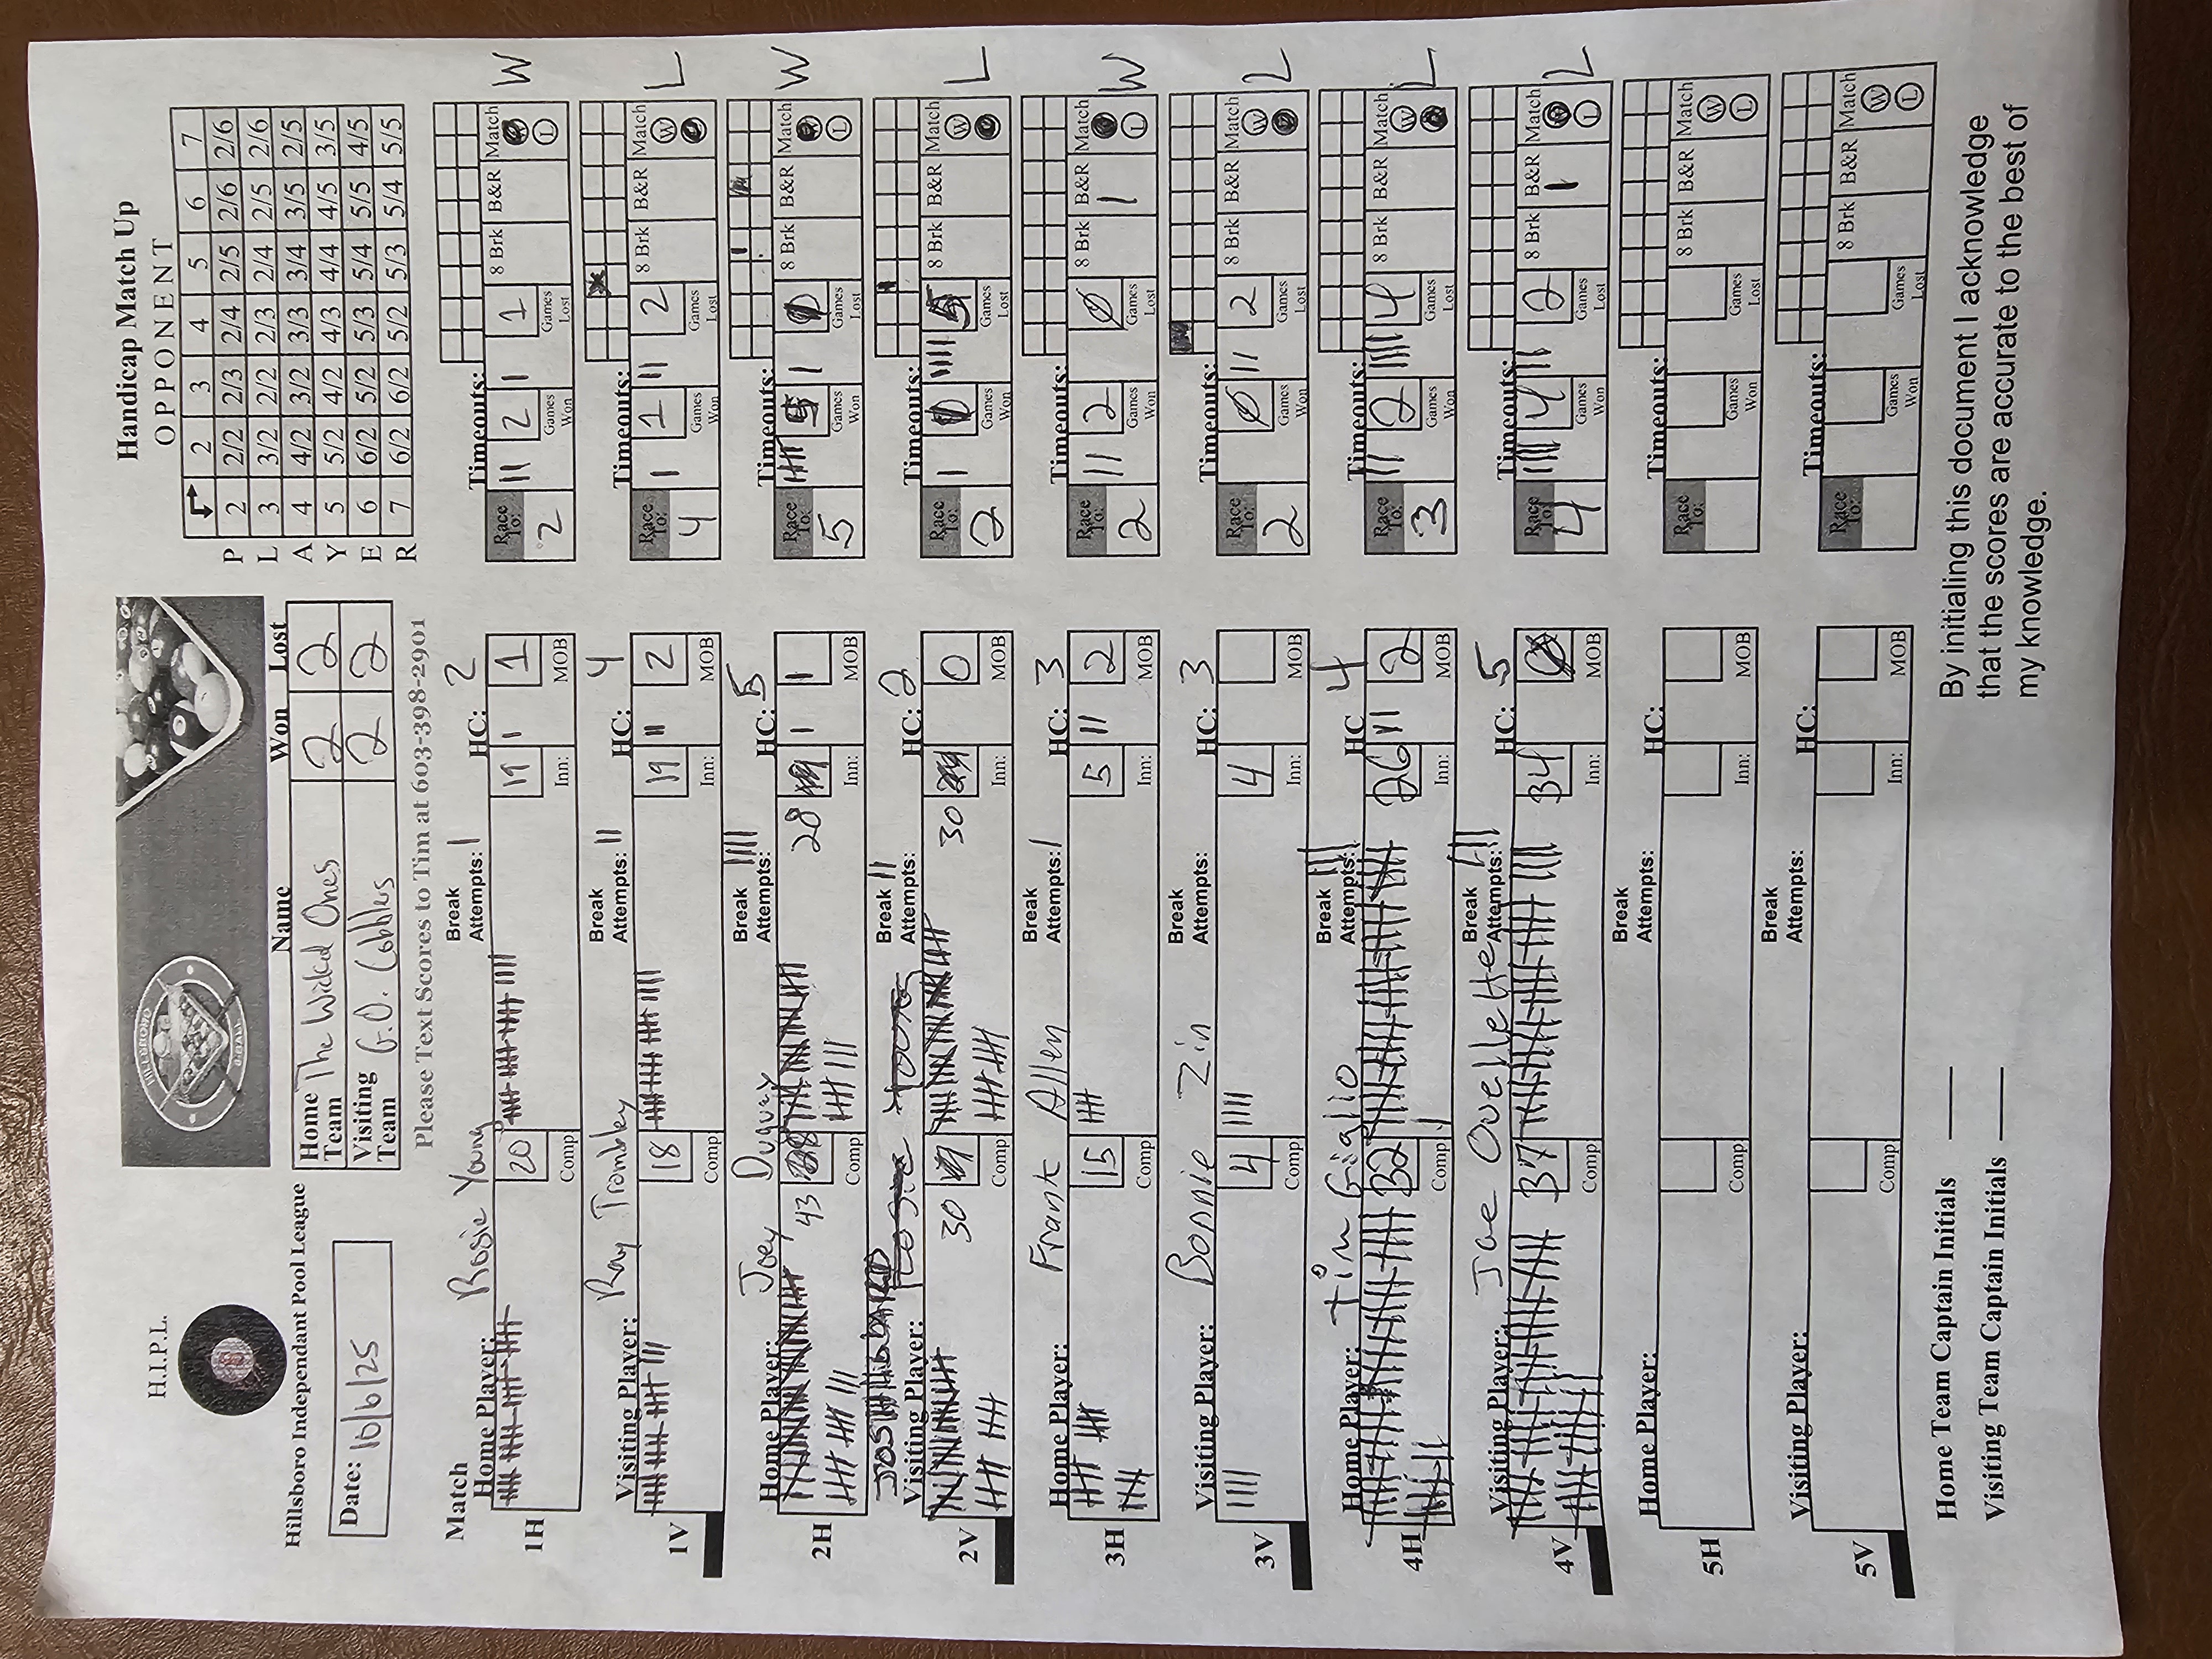 H.I.P.L.
Hillsboro Independant Pool League
Date: 10/6/25
HILLSBORO
Name Won Lost
Home Team The Wicked Ones 2 2
Visiting Team G.O. Cobbles 2 2
Please Text Scores to Tim at 603-398-2901
Handicap Match Up
OPPONENT
2 3 4 5 6 7
P 2 2/2 2/3 2/4 2/5 2/6 2/6
L 3 3/2 2/2 2/3 2/4 2/5 2/6
A 4 4/2 3/2 3/3 3/4 3/5 2/5
Y 5 5/2 4/2 4/3 4/4 4/5 3/5
E 6 6/2 5/2 5/3 5/4 5/5 4/5
R 7 6/2 6/2 5/2 5/3 5/4 5/5
Match
1H Home Player: Rosie Young Break Attempts: HC: 2 Timeouts:
20 Comp 19 Inn: 1 MOB Race To: 2 2 Games Won 1 Games Lost 8 Brk B&R Match W L W
1V Visiting Player: Ray Trombley Break Attempts: HC: 4 Timeouts:
18 Comp 19 Inn: 2 MOB Race To: 4 1 Games Won 2 Games Lost 8 Brk B&R Match W L L
2H Home Player: Joey Duguay Break Attempts: HC: 5 Timeouts:
43 Comp 28 Inn: 1 MOB Race To: 5 5 Games Won Games Lost 8 Brk B&R Match W L W
2V Visiting Player: Break Attempts: HC: 2 Timeouts:
30 Comp 30 Inn: 0 MOB Race To: 2 Games Won 5 Games Lost 8 Brk B&R Match W L L
3H Home Player: Frank Allen Break Attempts: HC: 3 Timeouts:
15 Comp 5 Inn: 2 MOB Race To: 2 2 Games Won 0 Games Lost 8 Brk B&R 1 Match W L W
3V Visiting Player: Bonnie Zin Break Attempts: HC: 3 Timeouts:
4 Comp 4 Inn: MOB Race To: 2 0 Games Won 2 Games Lost 8 Brk B&R Match W L L
4H Home Player: Tim Giglio Break Attempts: HC 4 Timeouts:
32 Comp 26 Inn: 2 MOB Race To: 3 2 Games Won 4 Games Lost 8 Brk B&R Match W L L
4V Visiting Player: Jae Ouellette Break Attempts: HC: 5 Timeouts:
37 Comp 34 Inn: MOB Race To: 4 4 Games Won 2 Games Lost 8 Brk B&R 1 Match W L L
5H Home Player: Break Attempts: HC: Timeouts:
Comp Inn: MOB Race To: Games Won Games Lost 8 Brk B&R Match W L
5V Visiting Player: Break Attempts: HC: Timeouts:
Comp Inn: MOB Race To: Games Won Games Lost 8 Brk B&R Match W L
Home Team Captain Initials
Visiting Team Captain Initials
By initialing this document I acknowledge
that the scores are accurate to the best of
my knowledge.